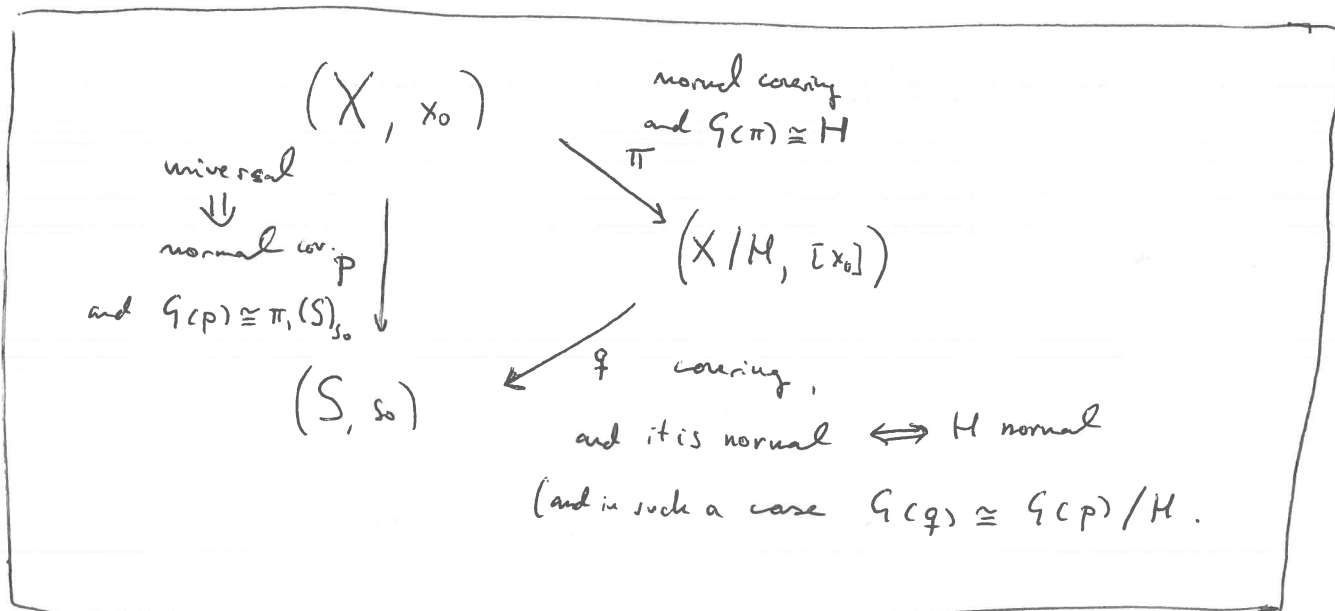 (X, x₀)
normal covering
and G(π) ≅ H
π
universal
⇓
normal cov. p
and G(p) ≅ π₁(S)ₛ₀
(X/H, [x₀])
q covering,
(S, s₀)
and it is normal ⟺ H normal
(and in such a case G(q) ≅ G(p)/H.